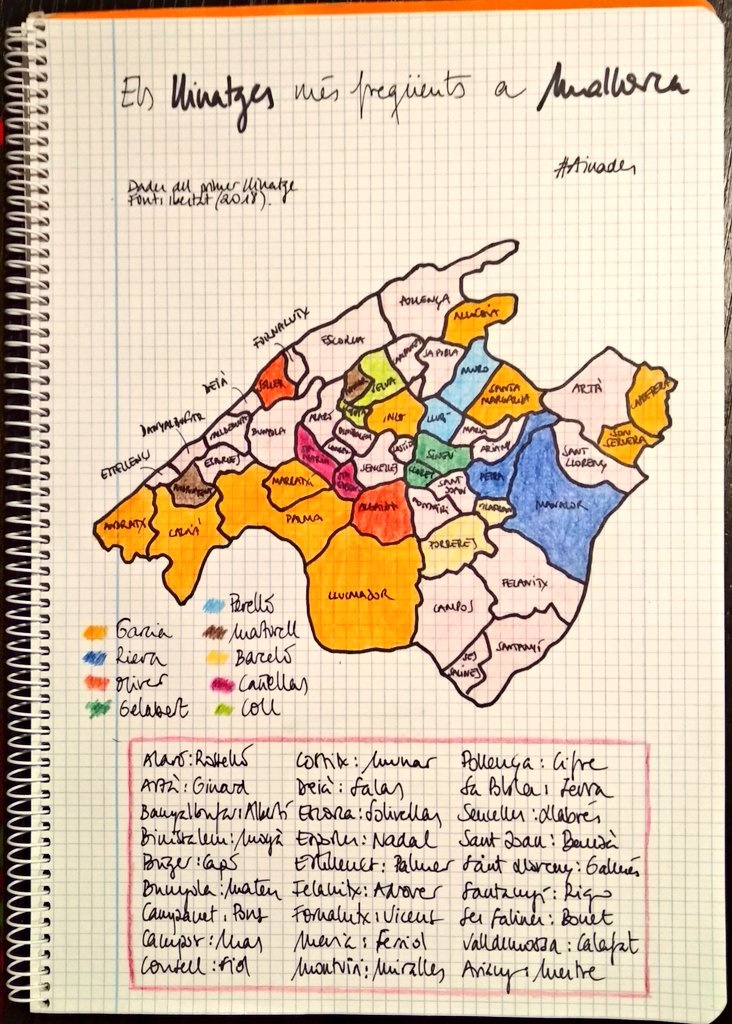 Els llinatges més freqüents a Mallorca
#Ainades
Dades del primer llinatge
Font: ibestat (2018).
POLLENÇA
ALCÚDIA
FORNALUTX
ESCORCA
SA POBLA
CAMPANET
MURO
SELVA
SÓLLER
DEIÀ
SANTA MARGALIDA
ARTÀ
CAPDEPERA
INCA
LLUBÍ
BANYALBUFAR
VALLDEMOSSA
BUNYOLA
ALARÓ
BINISSALEM
MARIA
ARIANY
SON SERVERA
ESTELLENCS
ESPORLES
SANTA MARIA
SENCELLES
COSTITX
SINEU
LLORET
SANT JOAN
PETRA
SANT LLORENÇ
MANACOR
MARRATXÍ
ANDRATX
CALVIÀ
PALMA
ALGAIDA
MONTUÏRI
VILAFRANCA
PORRERES
LLUCMAJOR
FELANITX
CAMPOS
SANTANYÍ
SES SALINES
Perelló
Garcia
Martorell
Riera
Barceló
Oliver
Cañellas
Gelabert
Coll
Alaró: Rosselló
Artà: Ginard
Banyalbufar: Albertí
Binissalem: Moyà
Búger: Capó
Bunyola: Mateu
Campanet: Pons
Campos: Mas
Consell: Fiol
Costitx: Munar
Deià: Salas
Escorca: Solivellas
Esporles: Nadal
Estellencs: Palmer
Felanitx: Adrover
Fornalutx: Vicens
Maria: Ferriol
Montuïri: Miralles
Pollença: Cifre
Sa Pobla: Serra
Sencelles: Llabrés
Sant Joan: Bauzà
Sant Llorenç: Galmés
Santanyí: Rigo
Ses Salines: Bonet
Valldemossa: Calafat
Ariany: Mestre